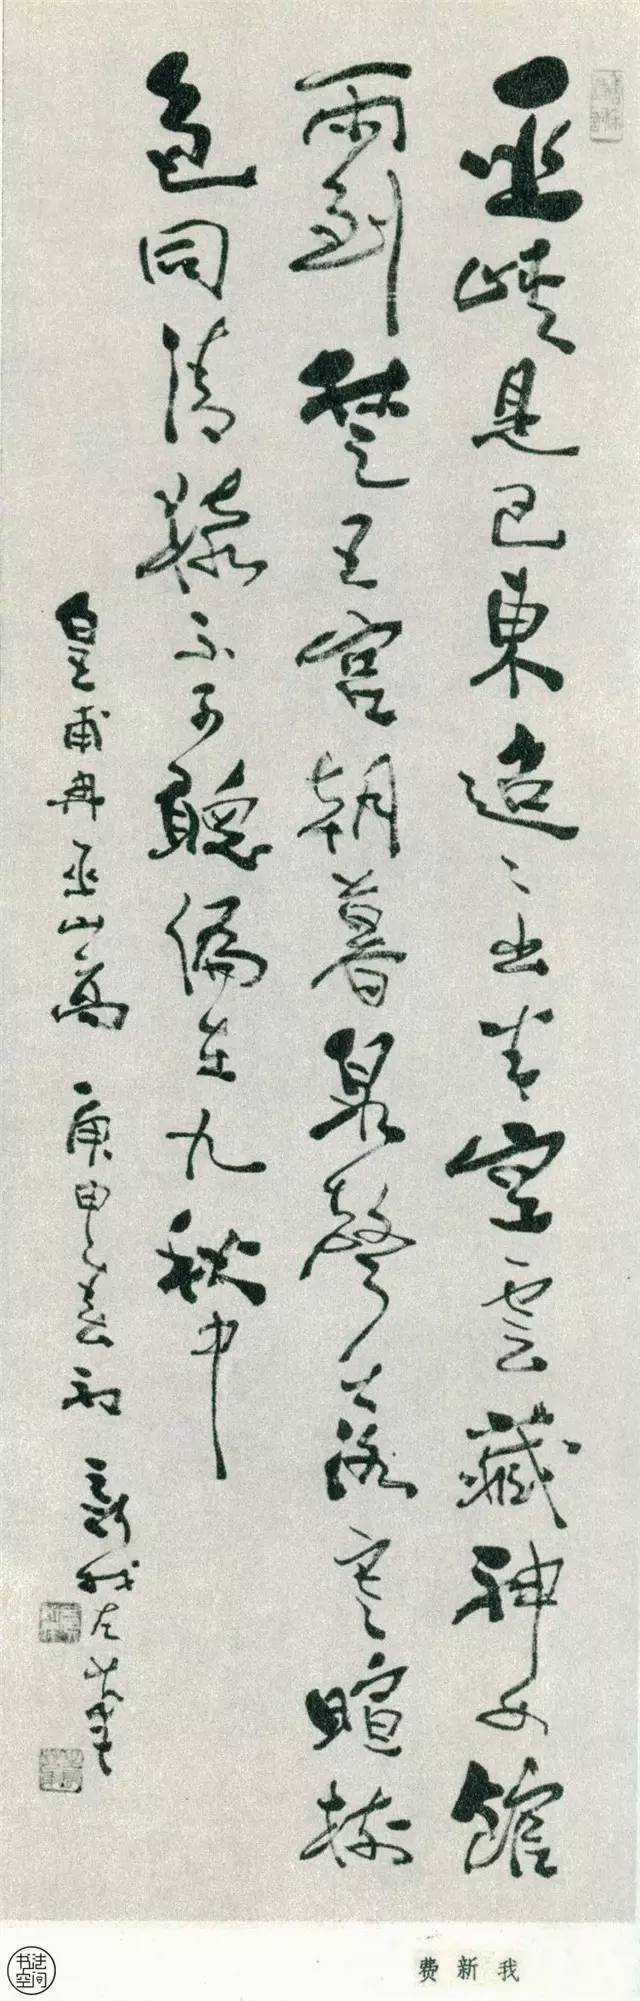 巫峡是巴东迢〻出青空雲藏神女館
雨到楚王宫朝暮泉聲落寒暄樹
色同清猿不可聽偏在九秋中
皇甫冉巫山高 庚申之春初 新我左筆
費新我
书法空间